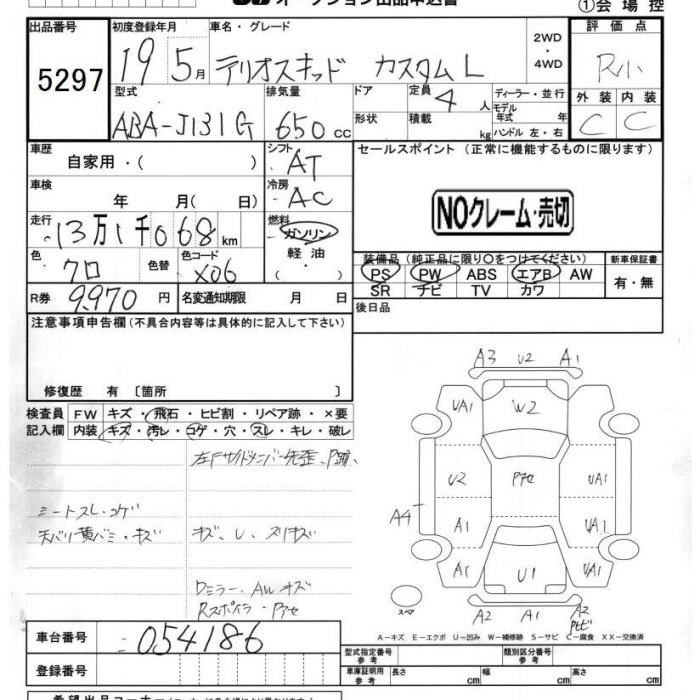 オークション出品申込書
①会場控
出品番号 初度登録年月 車名・グレード 2WD・4WD 評価点
5297 19 5月 テリオスキッド カスタムL R小
型式 排気量 ドア 定員 ディーラー・並行 外装 内装
ABA-J131G 650cc 形状 4人 積載 kg モデル年式 年 ハンドル 左・右 C C
車歴 自家用・( ) シフト AT セールスポイント (正常に機能するものに限ります)
車検 年 月( 日) 冷房 AC
NOクレーム・売切
走行 13万1千068km 燃料 ガソリン 軽油 ・( )
色 クロ 色替 色コード X06
装備品(純正品に限り○をつけてください) 新車保証書
PS PW ABS エアB AW 有・無
SR ナビ TV カワ
R券 9,970円 名変通知期限 月 日 後日品
注意事項申告欄(不具合内容等は具体的に記入して下さい)
修復歴 有〔箇所 〕
検査員 FW キズ・飛石・ヒビ割・リペア跡・×要
記入欄 内装 キズ・汚レ・コゲ・穴・スレ・キレ・破レ
左Fサイドメンバー先歪、P跡、
シートスレ・コゲ
天バリ黄バミ・キズ キズ、U、スリキズ
Dミラー、AWキズ
Rスポイラーアセ
A3 U2 A1
UA1 W2
U2 Pアセ UA1
A4 A1 UA1
A1 U1 A1
スペア A2 A1 A2
A－キズ E－エクボ U－凹み W－補修跡 S－サビ C－腐食 XX－交換済
車台番号 054186
型式指定番号 参考 類別区分番号 参考
登録番号 車庫証明用 参考 長さ cm 幅 cm 高さ cm
希望出品コーナー